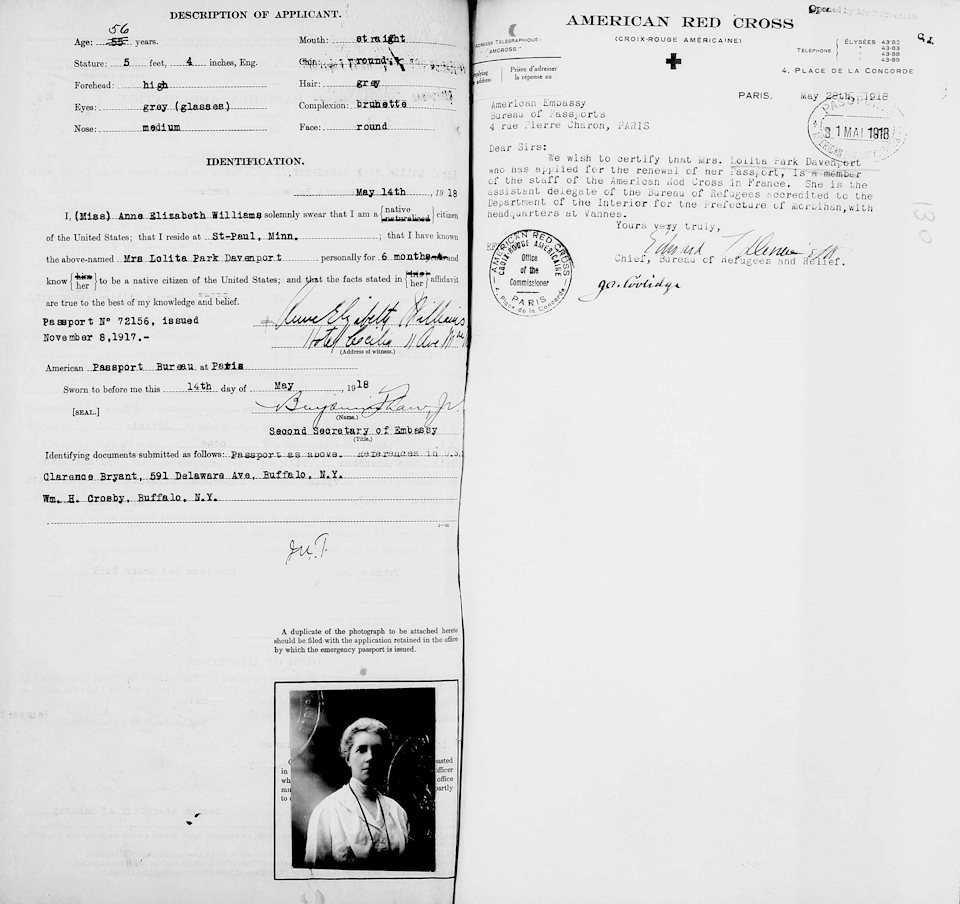 DESCRIPTION OF APPLICANT.
56
Age: 55 years.
Stature: 5 feet, 4 inches, Eng.
Forehead: high
Eyes: grey (glasses)
Nose: medium
Mouth: straight
Chin: round
Hair: grey
Complexion: brunette
Face: round
IDENTIFICATION.
May 14th, 1918
I, (Miss) Anna Elizabeth Williams solemnly swear that I am a {native naturalized} citizen
of the United States; that I reside at St-Paul, Minn. ; that I have known
the above-named Mrs Lolita Park Davenport personally for 6 months and
know {him her} to be a native citizen of the United States; and that the facts stated in {his her} affidavit
are true to the best of my knowledge and belief.
Passport N° 72156, issued
November 8, 1917.-
Anne Elizabeth Williams
Hotel Cecilia 11 Ave
(Address of witness.)
American Passport Bureau at Paris
Sworn to before me this 14th day of May, 1918
[SEAL.]
Benjamin Thaw, Jr.
(Name.)
Second Secretary of Embassy
(Title.)
Identifying documents submitted as follows: Passport as above. References in U.S.
Clarence Bryant, 591 Delaware Ave, Buffalo, N.Y.
Wm. H. Crosby, Buffalo, N.Y.
A duplicate of the photograph to be attached hereto
should be filed with the application retained in the office
by which the emergency passport is issued.
AMERICAN RED CROSS
(CROIX-ROUGE AMÉRICAINE)
ADRESSE TÉLÉGRAPHIQUE:
"AMCROSS"
Prière d'adresser
la réponse au
TELEPHONE { ÉLYSÉES 43-82
" 43-83
" 43-88
" 43-89
4, PLACE DE LA CONCORDE
PARIS. May 28th, 1918
31 MAI 1918
American Embassy
Bureau of Passports
4 rue Pierre Charon, PARIS
Dear Sirs:
We wish to certify that Mrs. Lolita Park Davenport
who has applied for the renewal of her Passport, is a member
of the staff of the American Red Cross in France. She is the
assistant delegate of the Bureau of Refugees accredited to the
Department of the Interior for the Prefecture of Morbihan, with
headquarters at Vannes.
Yours very truly,
Chief, Bureau of Refugees and Relief.
AMERICAN RED CROSS
CROIX ROUGE AMÉRICAINE
Office
of the
Commissioner
PARIS
4, Place de la Concorde
130